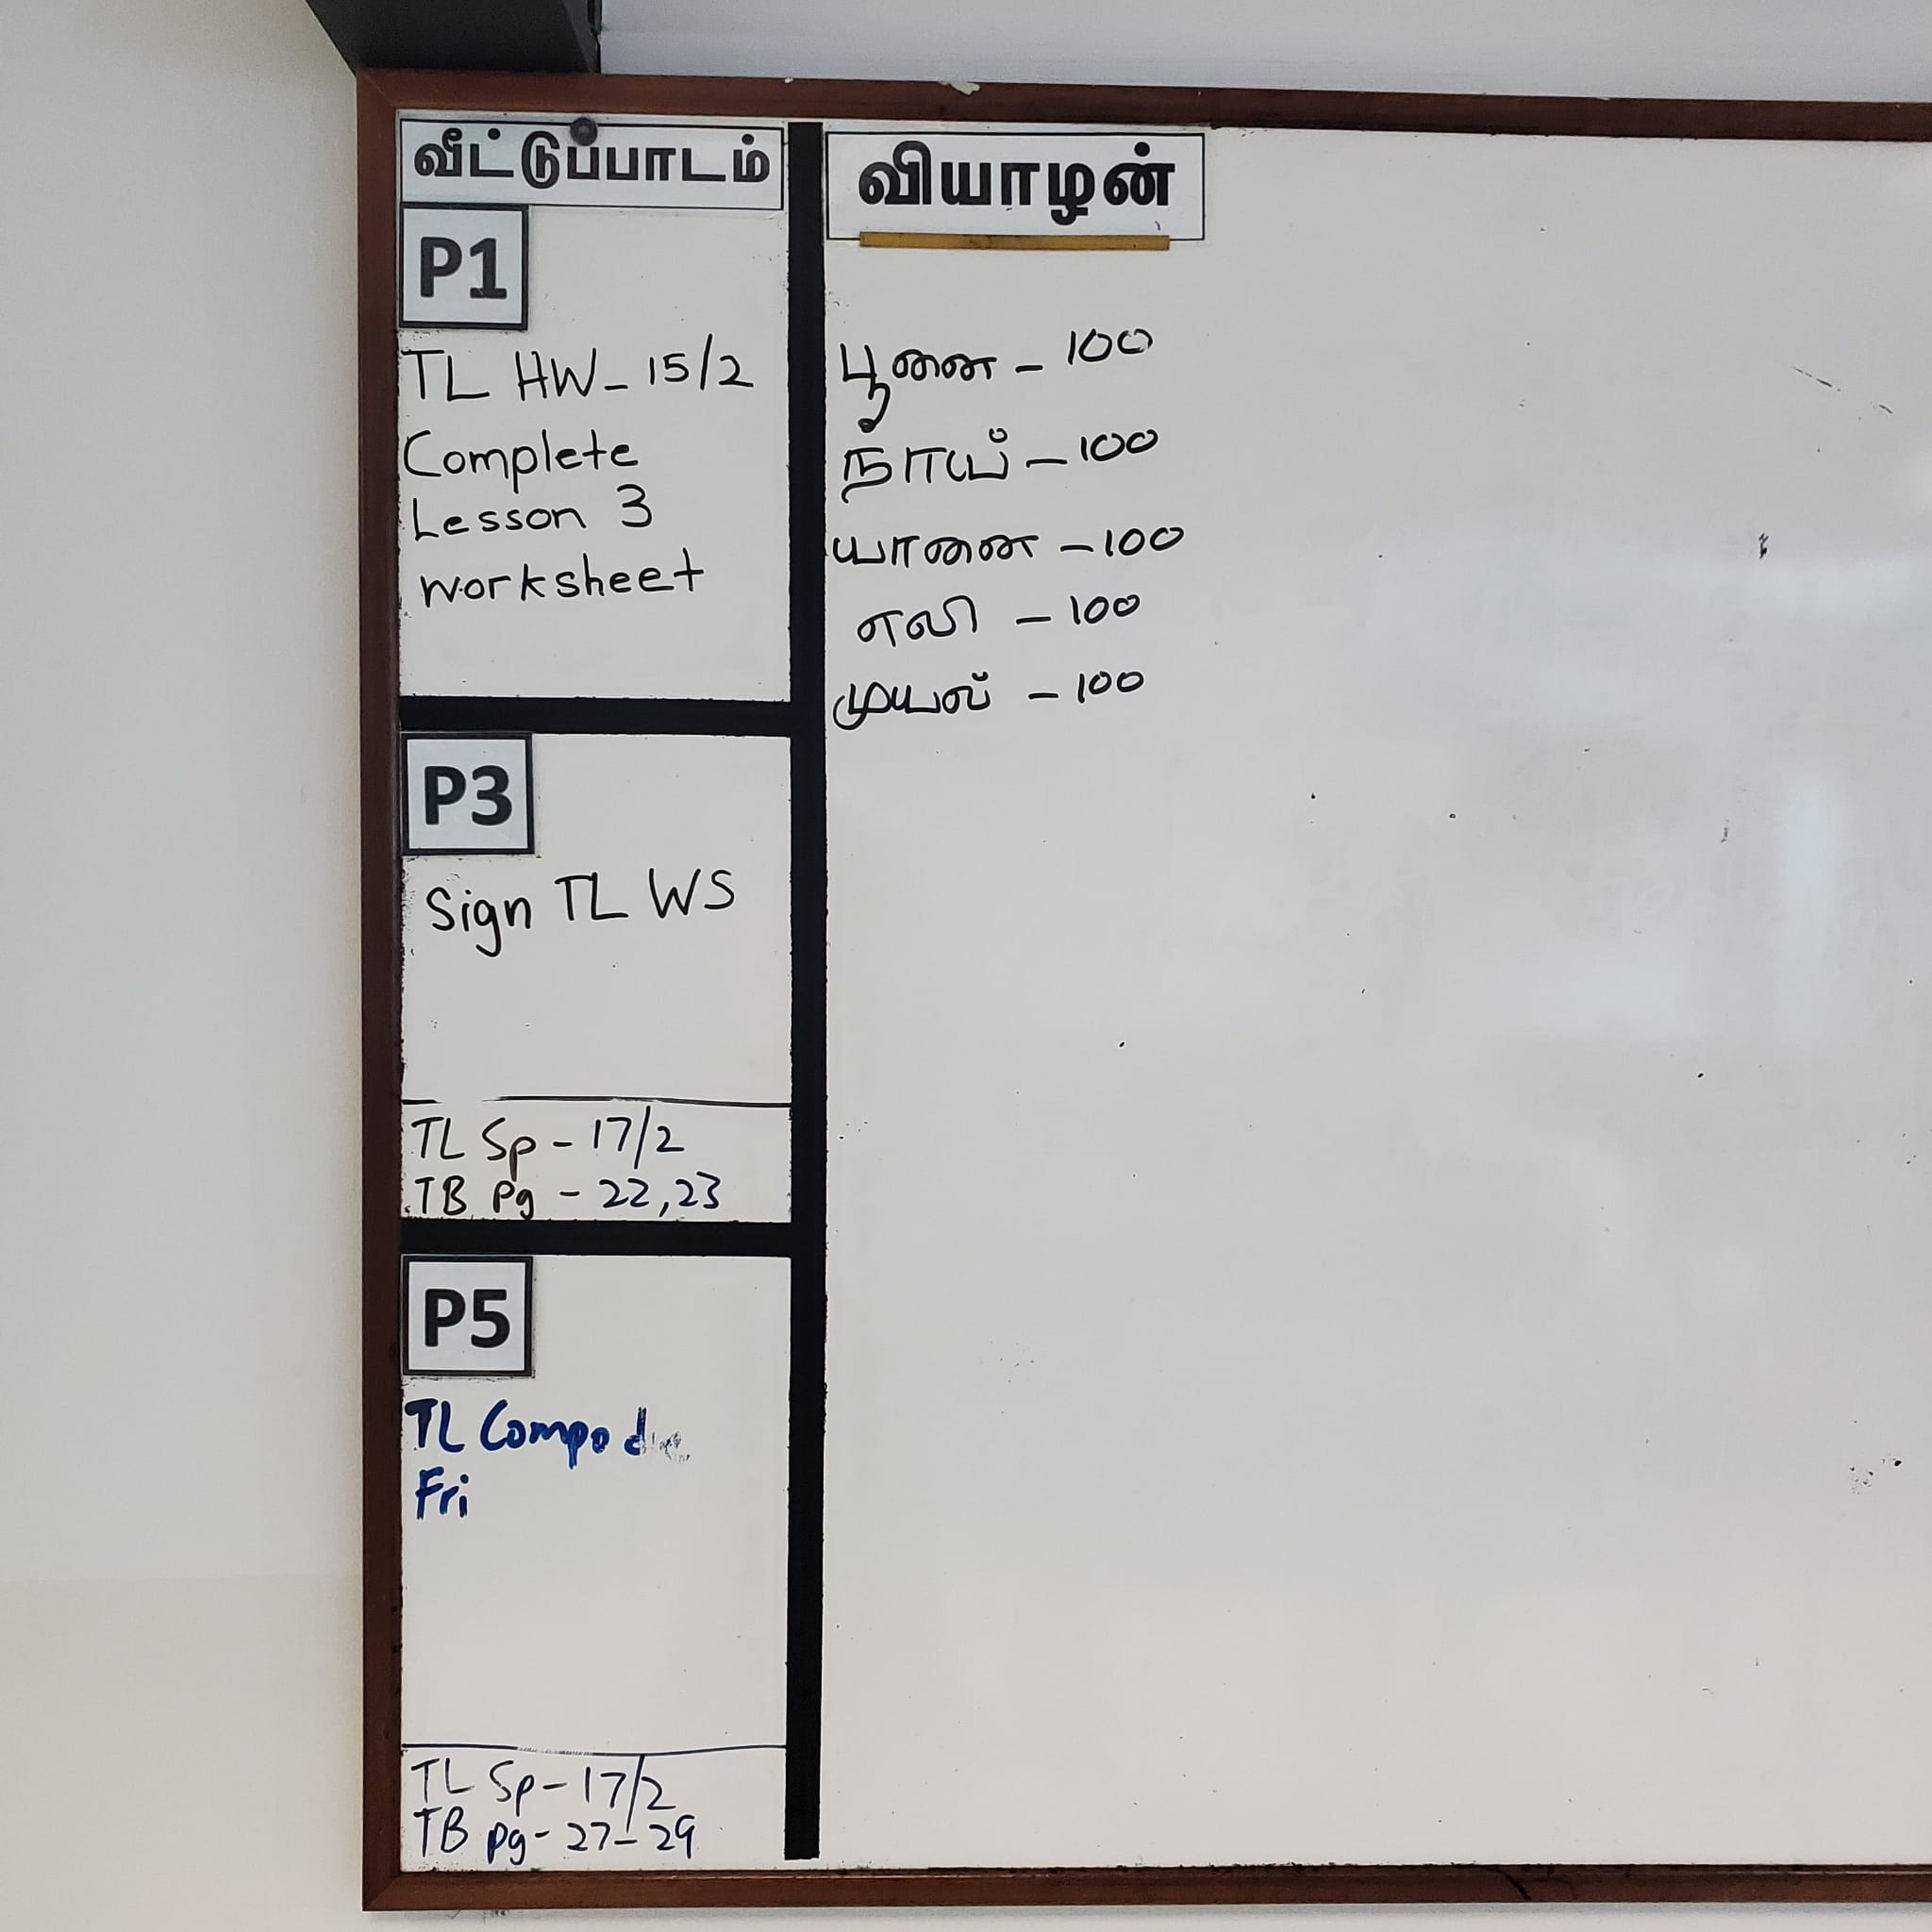 வீட்டுப்பாடம்
P1
TL HW - 15/2
Complete
Lesson 3
worksheet
P3
Sign TL WS
TL Sp - 17/2
TB Pg - 22,23
P5
TL Compo
Fri
TL Sp - 17/2
TB pg - 27-29
வியாழன்
பூனை - 100
நாய் - 100
யானை - 100
எலி - 100
முயல் - 100